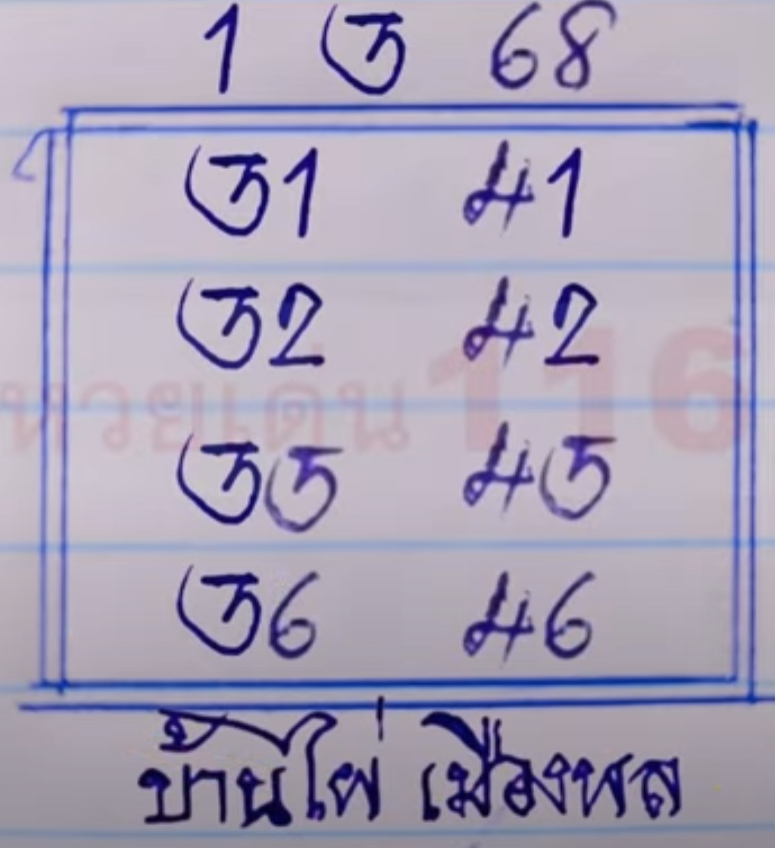 1 3 68
31 41
32 42
หวยเด่น 116
35 45
36 46
บ้านไผ่ เมืองพล